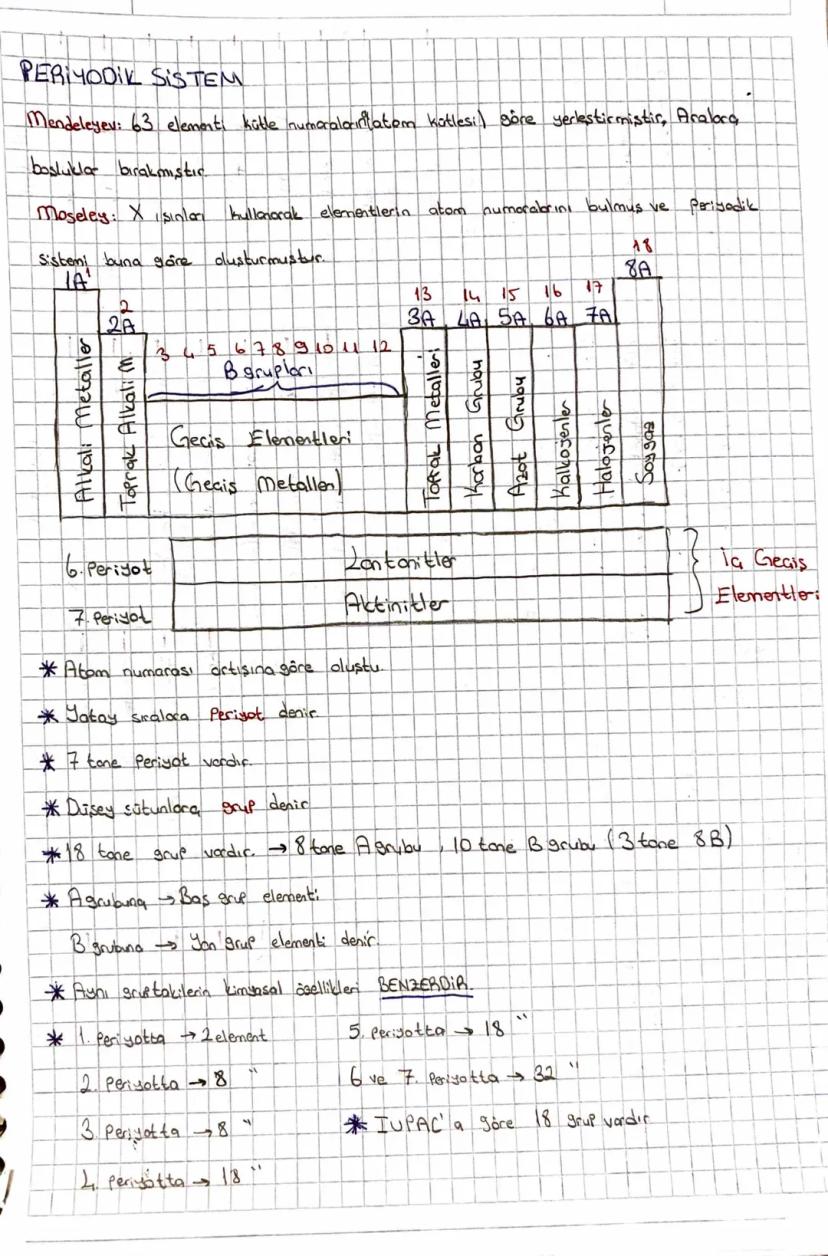 PERİYODİK SİSTEM
Mendeleyev: 63 elementi kütle numaralarına (atom kütlesi) göre yerleştirmiştir, Aralara
boşluklar bırakmıştır.
Moseley: X ışınları kullanarak elementlerin atom numaralarını bulmuş ve Periyodik
sistemi buna göre oluşturmuştur.
18
1A 8A
13 14 15 16 17
2
2A 3A 4A 5A 6A 7A
3 4 5 6 7 8 9 10 11 12
B grupları
Alkali Metaller
Toprak Alkali M.
Geçiş Elementleri
(Geçiş Metalleri)
Toprak Metalleri
Karbon Grubu
Azot Grubu
Kalkojenler
Halojenler
Soygaz
6. Periyot Lantanitler İç Geçiş
7. Periyot Aktinitler Elementleri
* Atom numarası artışına göre oluştu.
* Yatay sıralara Periyot denir.
* 7 tane Periyot vardır.
* Düşey sütunlara, grup denir
* 18 tane grup vardır. → 8 tane A grubu, 10 tane B grubu (3 tane 8B)
* A grubuna → Baş grup elementi
B grubuna → Yan grup elementi denir.
* Aynı gruptakilerin kimyasal özellikleri BENZERDİR.
* 1. Periyotta → 2 element 5. Periyotta → 18 "
2. Periyotta → 8 " 6 ve 7. Periyotta → 32 "
3. Periyotta → 8 " * IUPAC'a göre 18 grup vardır
4. Periyotta → 18 "